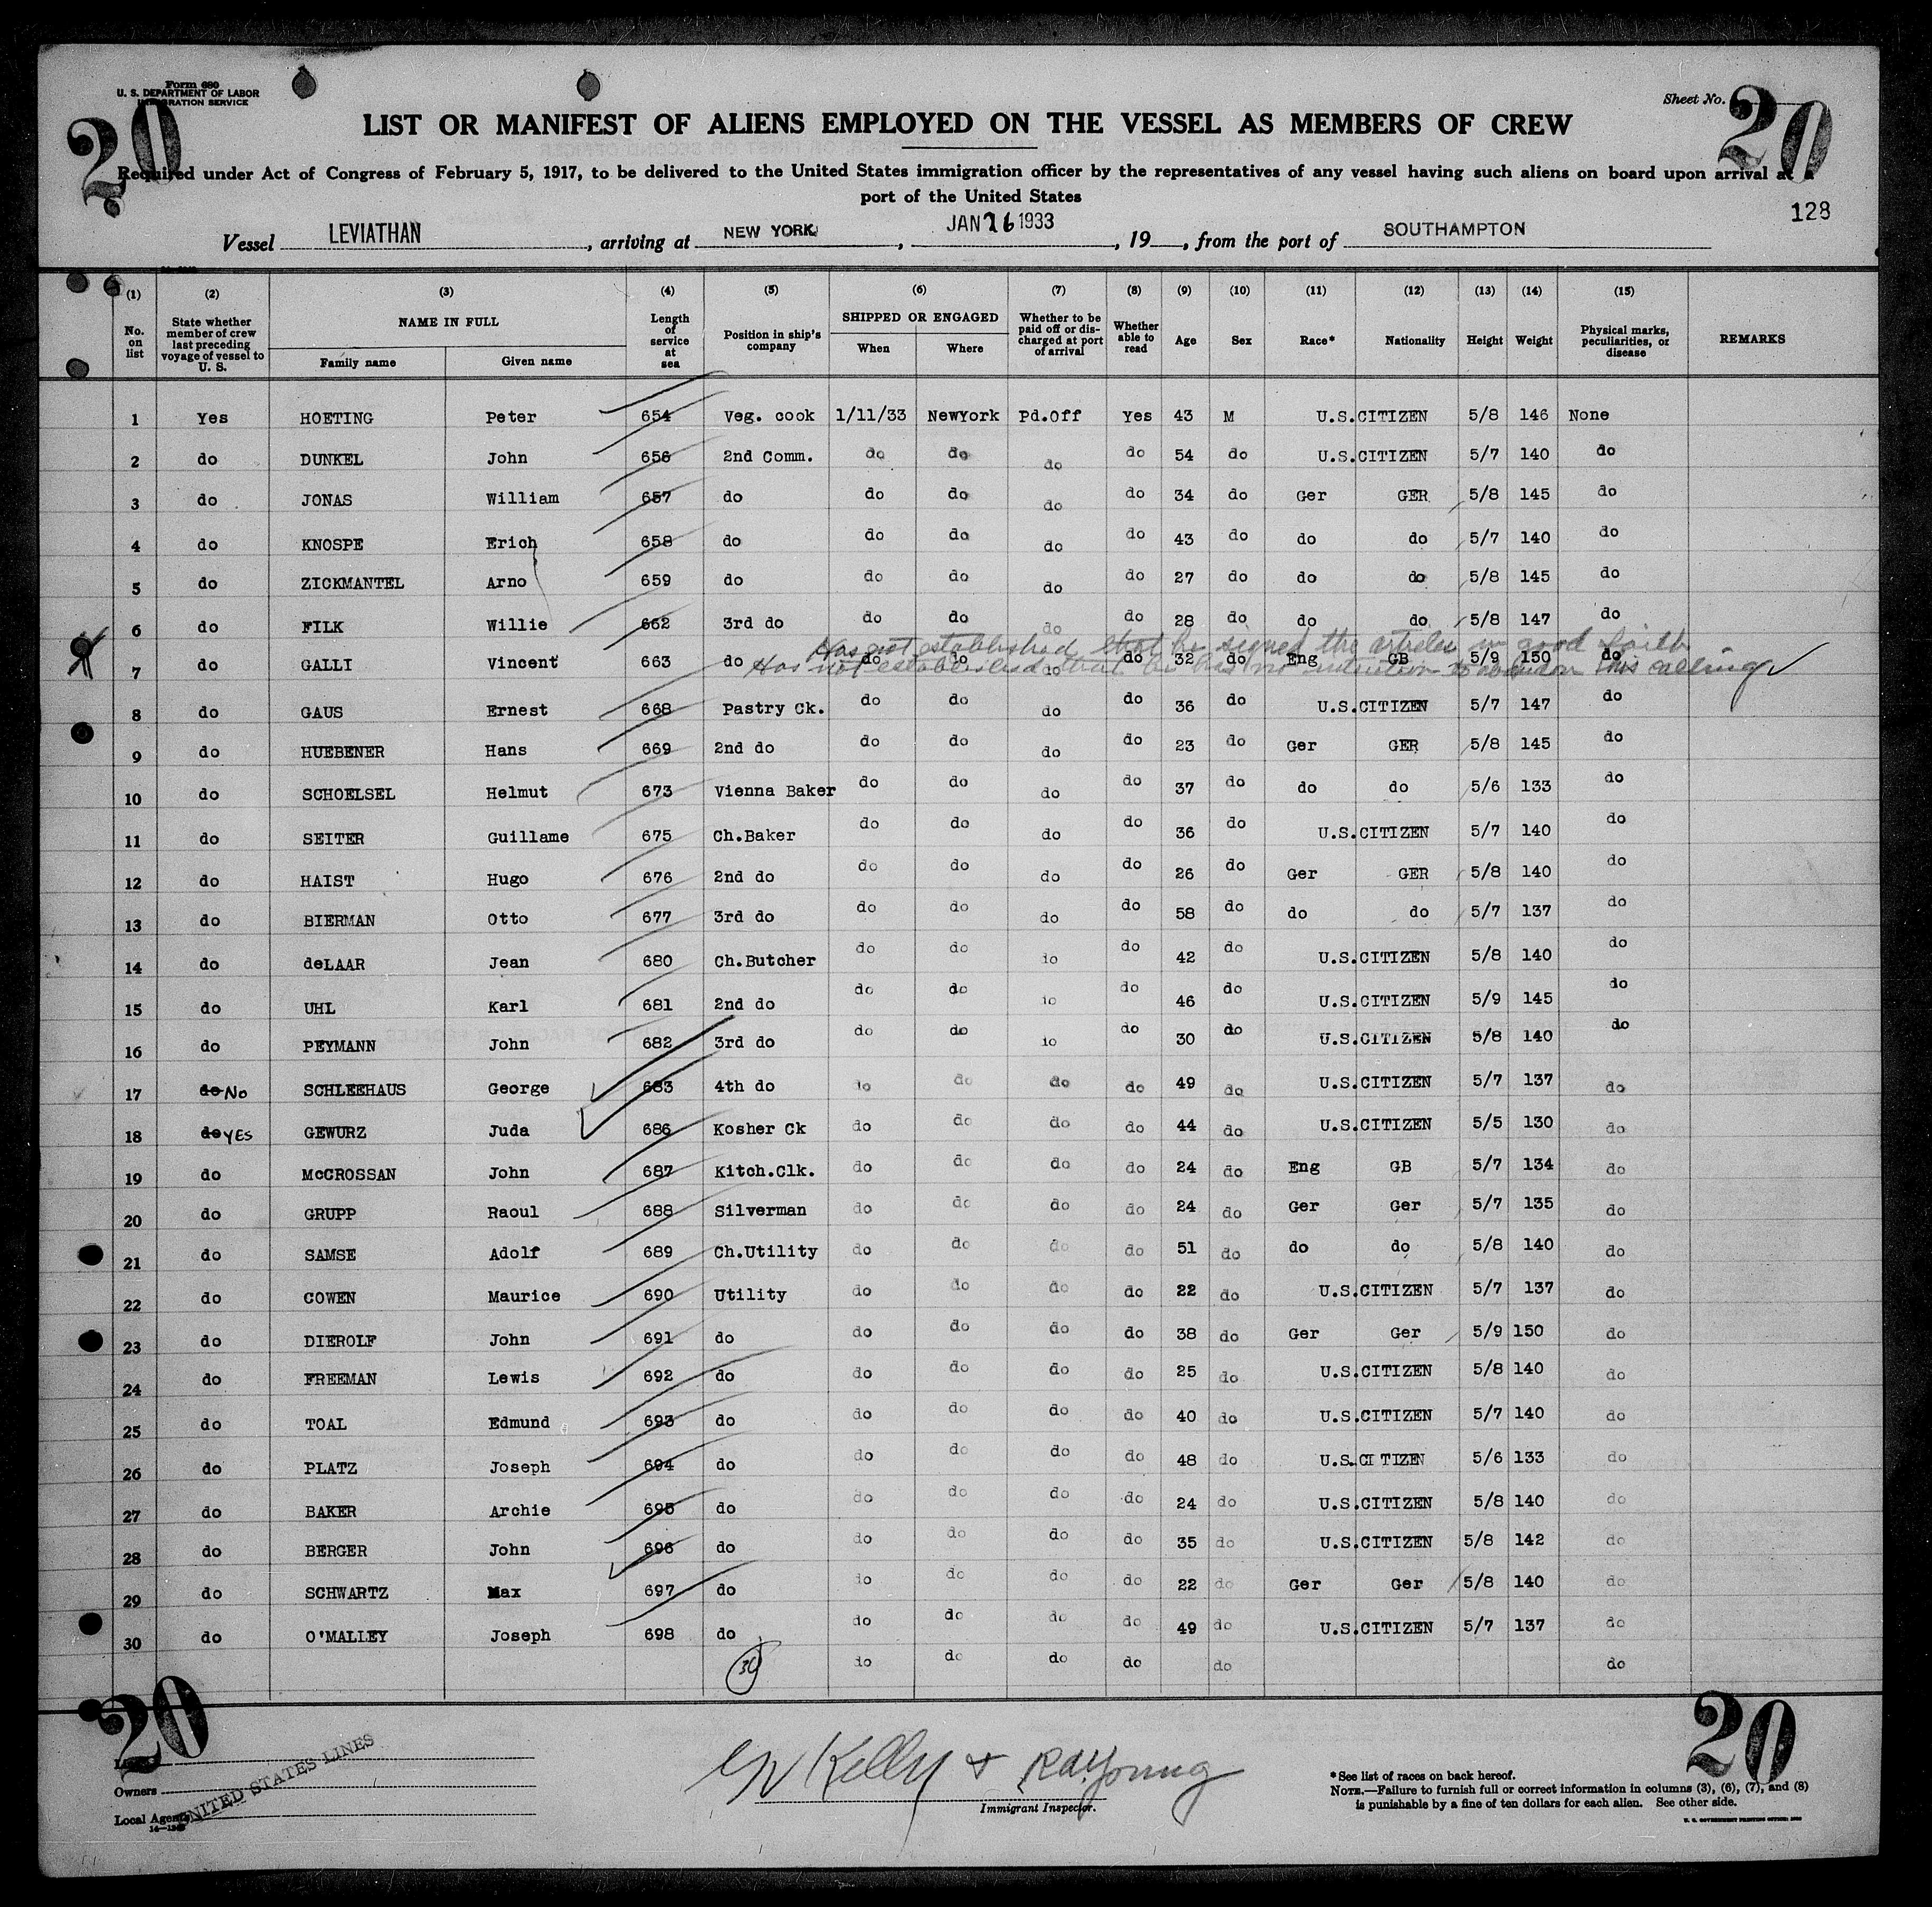 Form 680
U. S. DEPARTMENT OF LABOR
IMMIGRATION SERVICE
Sheet No.
20 20
LIST OR MANIFEST OF ALIENS EMPLOYED ON THE VESSEL AS MEMBERS OF CREW
Required under Act of Congress of February 5, 1917, to be delivered to the United States immigration officer by the representatives of any vessel having such aliens on board upon arrival at a
port of the United States
128
Vessel LEVIATHAN, arriving at NEW YORK, JAN 26 1933, 19, from the port of SOUTHAMPTON
(1) (2) (3) (4) (5) (6) (7) (8) (9) (10) (11) (12) (13) (14) (15)
No. on list State whether member of crew last preceding voyage of vessel to U. S. NAME IN FULL Family name Given name Length of service at sea Position in ship's company SHIPPED OR ENGAGED When Where Whether to be paid off or discharged at port of arrival Whether able to read Age Sex Race* Nationality Height Weight Physical marks, peculiarities, or disease REMARKS
1 Yes HOETING Peter 654 Veg. cook 1/11/33 NewYork Pd.Off Yes 43 M U.S.CITIZEN 5/8 146 None
2 do DUNKEL John 656 2nd Comm. do do do do 54 do U.S.CITIZEN 5/7 140 do
3 do JONAS William 657 do do do do do 34 do Ger GER 5/8 145 do
4 do KNOSPE Erich 658 do do do do do 43 do do do 5/7 140 do
5 do ZICKMANTEL Arno 659 do do do do do 27 do do do 5/8 145 do
6 do FILK Willie 662 3rd do do do do do 28 do do do 5/8 147 do
Has not established that he signed the articles in good faith
7 do GALLI Vincent 663 do do do do do 32 do Eng GB 5/9 150 do
Has not established that he has no intention to abandon this calling
8 do GAUS Ernest 668 Pastry Ck. do do do do 36 do U.S.CITIZEN 5/7 147 do
9 do HUEBENER Hans 669 2nd do do do do do 23 do Ger GER 5/8 145 do
10 do SCHOELSEL Helmut 673 Vienna Baker do do do do 37 do do do 5/6 133 do
11 do SEITER Guillame 675 Ch.Baker do do do do 36 do U.S.CITIZEN 5/7 140 do
12 do HAIST Hugo 676 2nd do do do do do 26 do Ger GER 5/8 140 do
13 do BIERMAN Otto 677 3rd do do do do do 58 do do do 5/7 137 do
14 do deLAAR Jean 680 Ch.Butcher do do do do 42 do U.S.CITIZEN 5/8 140 do
15 do UHL Karl 681 2nd do do do do do 46 do U.S.CITIZEN 5/9 145 do
16 do PEYMANN John 682 3rd do do do do do 30 do U.S.CITIZEN 5/8 140 do
17 do No SCHLEEHAUS George 683 4th do do do do do 49 do U.S.CITIZEN 5/7 137 do
18 do YES GEWURZ Juda 686 Kosher Ck do do do do 44 do U.S.CITIZEN 5/5 130 do
19 do McCROSSAN John 687 Kitch.Clk. do do do do 24 do Eng GB 5/7 134 do
20 do GRUPP Raoul 688 Silverman do do do do 24 do Ger Ger 5/7 135 do
21 do SAMSE Adolf 689 Ch.Utility do do do do 51 do do do 5/8 140 do
22 do COWEN Maurice 690 Utility do do do do 22 do U.S.CITIZEN 5/7 137 do
23 do DIEROLF John 691 do do do do do 38 do Ger Ger 5/9 150 do
24 do FREEMAN Lewis 692 do do do do do 25 do U.S.CITIZEN 5/8 140 do
25 do TOAL Edmund 693 do do do do do 40 do U.S.CITIZEN 5/7 140 do
26 do PLATZ Joseph 694 do do do do do 48 do U.S.CITIZEN 5/6 133 do
27 do BAKER Archie 695 do do do do do 24 do U.S.CITIZEN 5/8 140 do
28 do BERGER John 696 do do do do do 35 do U.S.CITIZEN 5/8 142 do
29 do SCHWARTZ Max 697 do do do do do 22 do Ger Ger 5/8 140 do
30 do O'MALLEY Joseph 698 do do do do do 49 do U.S.CITIZEN 5/7 137 do
30 do do do do do do
20 20
Owners
Local Agents
UNITED STATES LINES
14-1240
Kelly & R.d.Young
Immigrant Inspector.
*See list of races on back hereof.
NOTE.—Failure to furnish full or correct information in columns (3), (6), (7), and (8)
is punishable by a fine of ten dollars for each alien. See other side.
U. S. GOVERNMENT PRINTING OFFICE